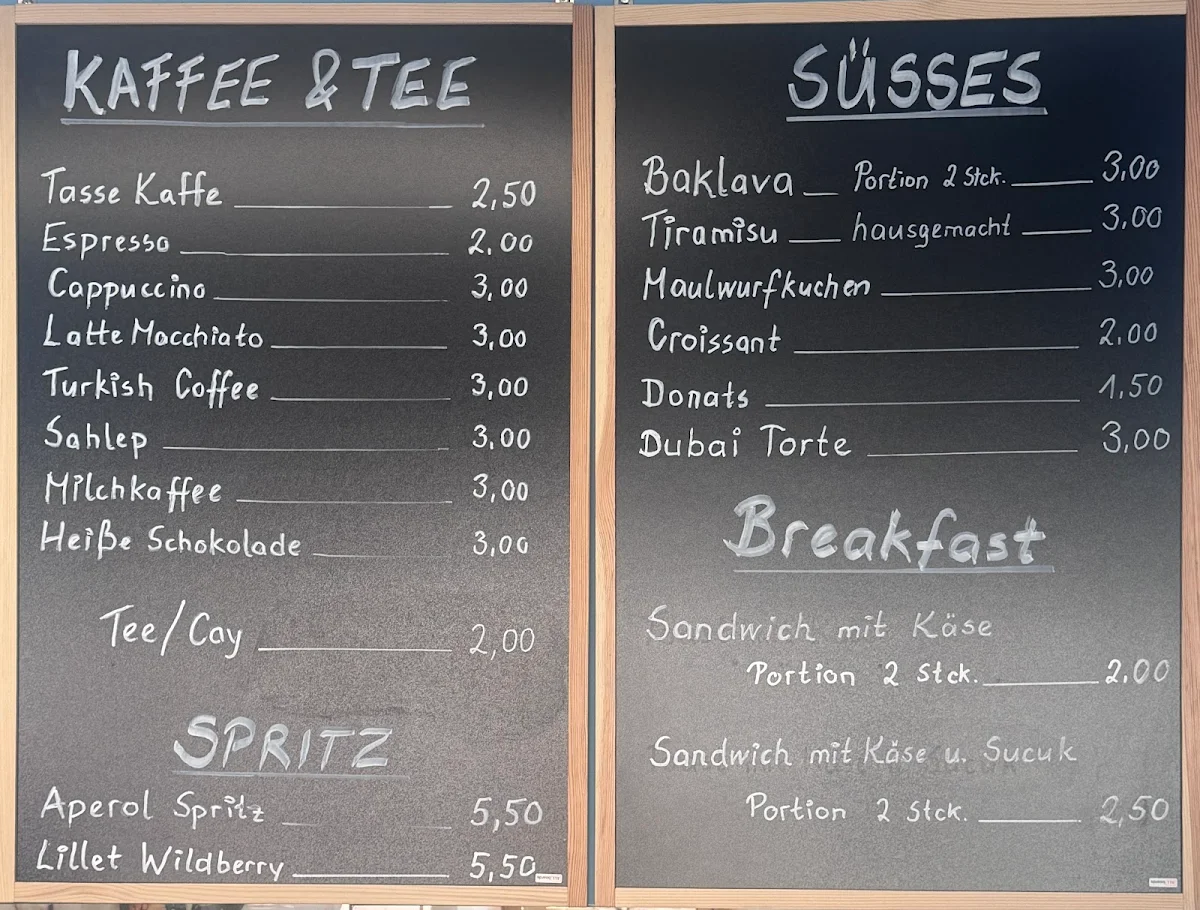 KAFFEE & TEE
Tasse Kaffe 2,50
Espresso 2.00
Cappuccino 3,00
Latte Macchiato 3,00
Turkish Coffee 3,00
Sahlep 3,00
Milchkaffee 3,00
Heiße Schokolade 3,00
Tee/Cay 2,00
SPRITZ
Aperol Spritz 5,50
Lillet Wildberry 5,50
SÜSSES
Baklava Portion 2 Stck. 3,00
Tiramisu hausgemacht 3,00
Maulwurfkuchen 3,00
Croissant 2.00
Donats 1,50
Dubai Torte 3,00
Breakfast
Sandwich mit Käse
Portion 2 Stck. 2.00
Sandwich mit Käse u. Sucuk
Portion 2 Stck. 2,50